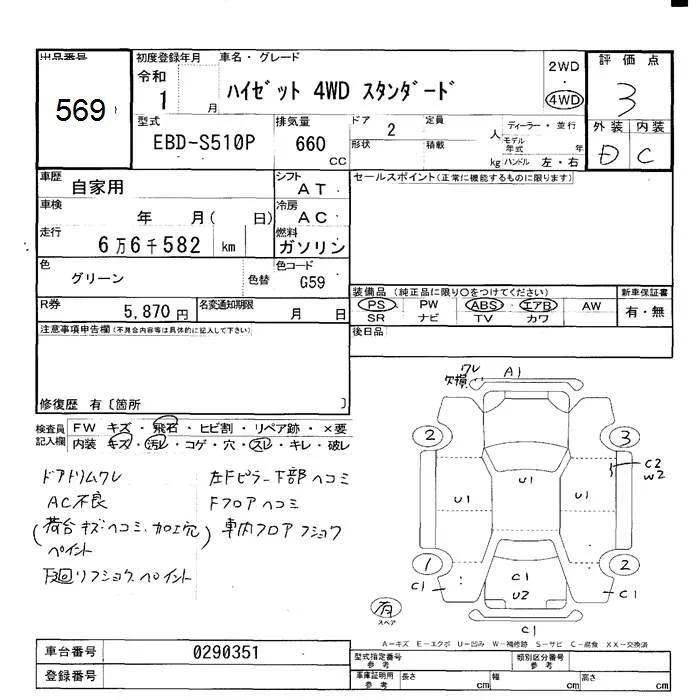 出品番号
569
初度登録年月
令和
1 月
車名・グレード
ハイゼット 4WD スタンダード
2WD
4WD
評価点
3
外装 内装
D C
型式
EBD-S510P
排気量
660
cc
ドア 2
定員 人
形状
積載 kg
ディーラー・並行
モデル年式 年
ハンドル 左・右
車歴
自家用
シフト
AT
車検
年 月( 日)
冷房
AC
走行
6万6千582 km
燃料
ガソリン
色
グリーン
色替
色コード
G59
R券
5,870 円
名変通知期限
月 日
セールスポイント(正常に機能するものに限ります)
装備品(純正品に限り○をつけてください)
PS PW ABS エアB AW
SR ナビ TV カワ
新車保証書
有・無
後日品
注意事項申告欄(不具合内容等は具体的に記入して下さい)
修復歴 有〔箇所 〕
検査員
記入欄
FW キズ・飛石・ヒビ割・リペア跡・×要
内装 キズ・汚レ・コゲ・穴・スレ・キレ・破レ
ドアドリムワレ
AC不良
(荷台 キズ・ヘコミ、加工穴)
ペイント
下廻リフショク、ペイント
左Fピラー下部ヘコミ
Fフロアヘコミ
車内フロア フショク
ワレ
欠損
A1
2
3
C2
W2
U1
U1
U1
1
2
C1
C1
U2
C1
C1
有
スペア
A-キズ E-エクボ U-凹み W-補修跡 S-サビ C-腐食 XX-交換済
車台番号
0290351
登録番号
型式指定番号
参考
類別区分番号
参考
車庫証明用
参考
長さ cm
幅 cm
高さ cm